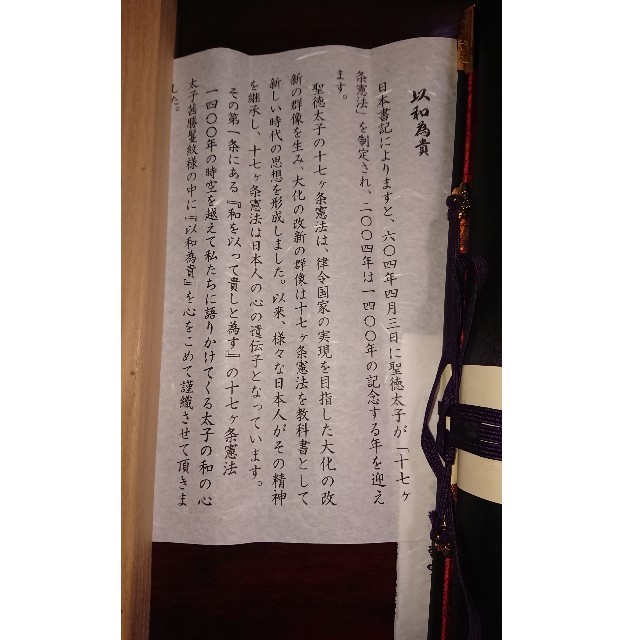 以和為貴
日本書記によりますと、六〇四年四月三日に聖徳太子が「十七ヶ
条憲法」を制定され、二〇〇四年は一四〇〇年の記念する年を迎え
ます。
聖徳太子の十七ヶ条憲法は、律令国家の実現を目指した大化の改
新の群像を生み、大化の改新の群像は十七ヶ条憲法を教科書として
新しい時代の思想を形成しました。以来、様々な日本人がその精神
を継承し、十七ヶ条憲法は日本人の心の遺伝子となっています。
その第一条にある『和を以って貴しと為す』の十七ヶ条憲法
一四〇〇年の時空を越えて私たちに語りかけてくる太子の和の心
太子茜勝鬘紋様の中に『以和為貴』を心をこめて謹織させて頂きま
した。